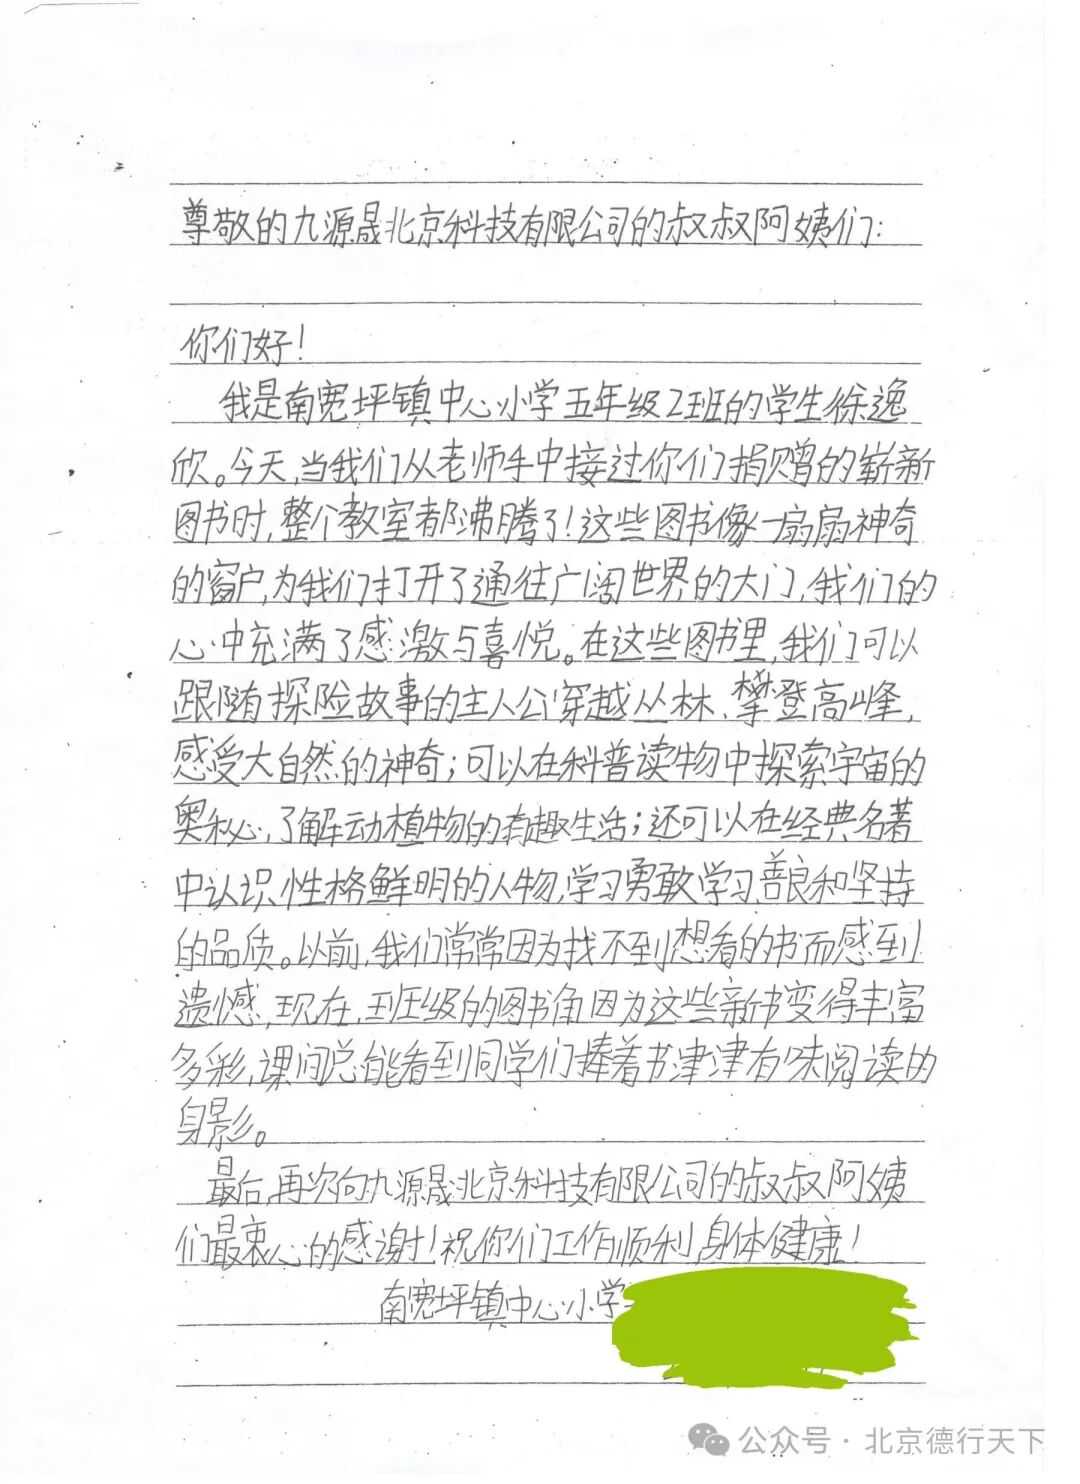 尊敬的九源晟北京科技有限公司的叔叔阿姨们：
你们好！
我是南宽坪镇中心小学五年级2班的学生徐逸
欣。今天，当我们从老师手中接过你们捐赠的崭新
图书时，整个教室都沸腾了！这些图书像一扇扇神奇
的窗户，为我们打开了通往广阔世界的大门，我们的
心中充满了感激与喜悦。在这些图书里，我们可以
跟随探险故事的主人公穿越丛林、攀登高峰，
感受大自然的神奇；可以在科普读物中探索宇宙的
奥秘，了解动植物的有趣生活；还可以在经典名著
中认识性格鲜明的人物，学习勇敢学习善良和坚持
的品质。以前，我们常常因为找不到想看的书而感到
遗憾，现在，班级的图书角因为这些新书变得丰富
多彩，课间总能看到同学们捧着书津津有味阅读的
身影。
最后，再次向九源晟北京科技有限公司的叔叔阿姨
们最衷心的感谢！祝你们工作顺利，身体健康！
南宽坪镇中心小学
公众号·北京德行天下